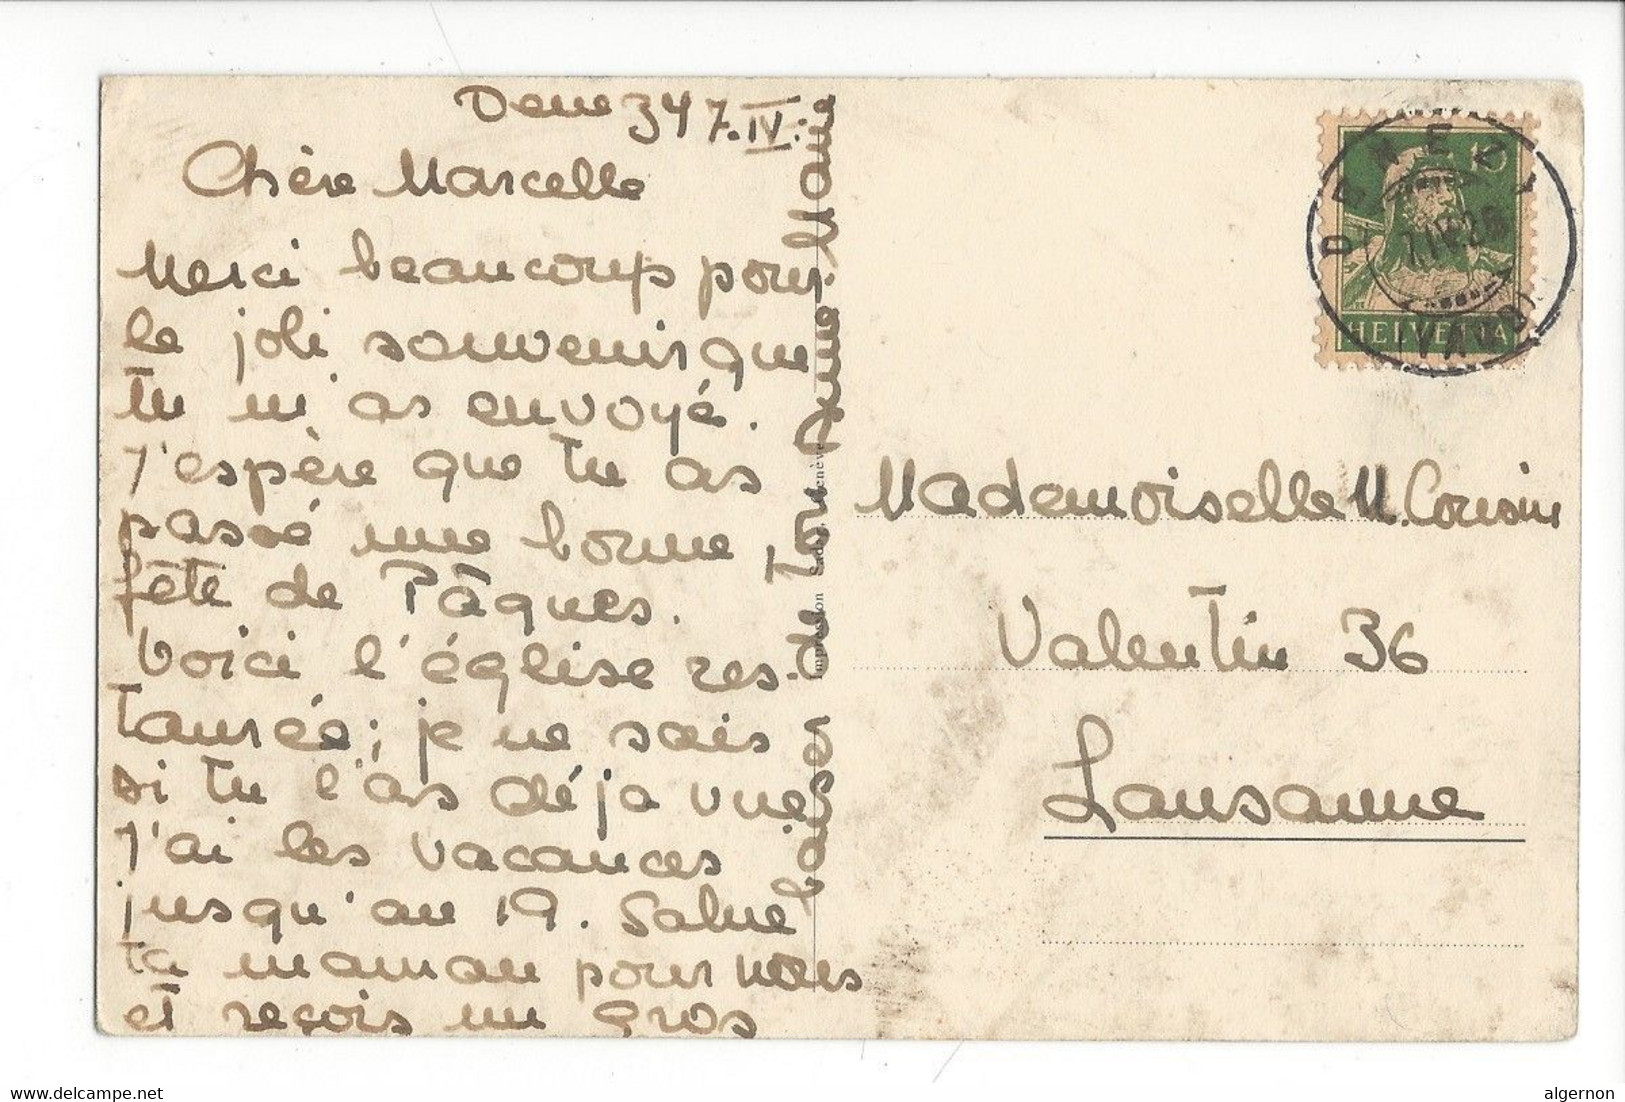 Denezy 7.IV.
Chère Marcelle
Merci beaucoup pour
le joli souvenir que
tu m'as envoyé.
J'espère que tu as
passé une bonne
fête de Pâques.
Voici l'église res-
taurée; je ne sais
si tu l'as déjà vue
J'ai les vacances
jusqu'au 19. Salue
ta maman pour nous
et reçois un gros
baiser de ton
Impression Genève
DENEZY
7.IV.26
(VAUD)
10
HELVETIA
Mademoiselle M. Cousin
Valentin 36
Lausanne
www.delcampe.net
algernon